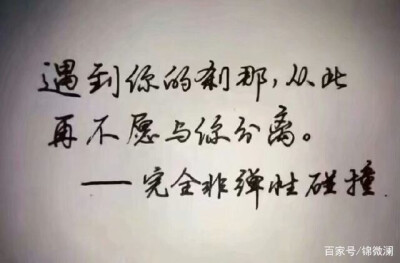 遇到你的刹那,从此
再不愿与你分离。
——完全非弹性碰撞.
百家号/锦微澜